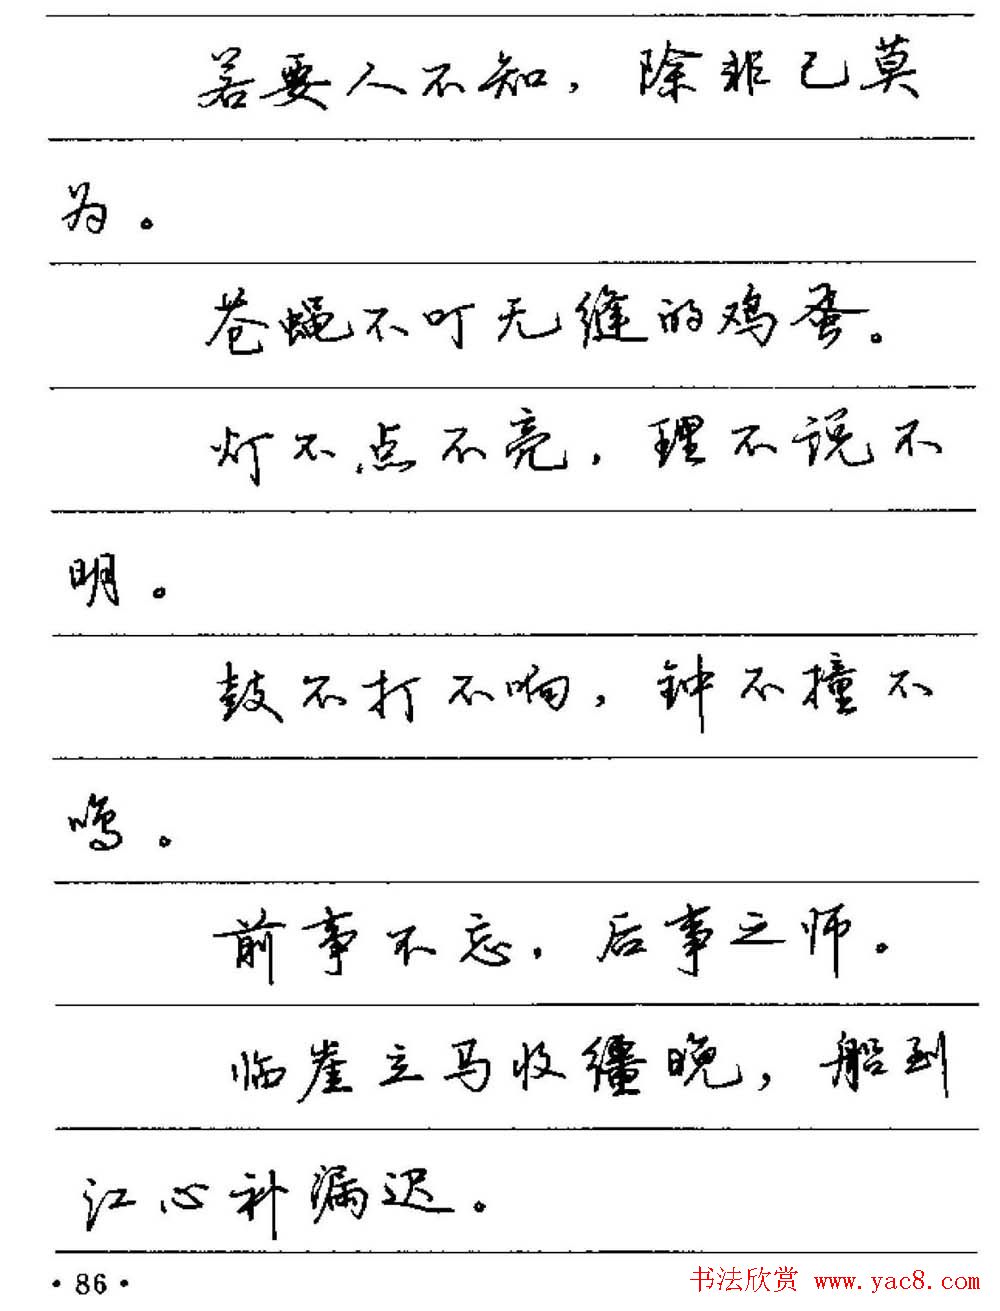 若要人不知，除非己莫
为。
苍蝇不叮无缝的鸡蛋。
灯不点不亮，理不说不
明。
鼓不打不响，钟不撞不
鸣。
前事不忘，后事之师。
临崖立马收缰晚，船到
江心补漏迟。
·86·
书法欣赏 www.yac8.com